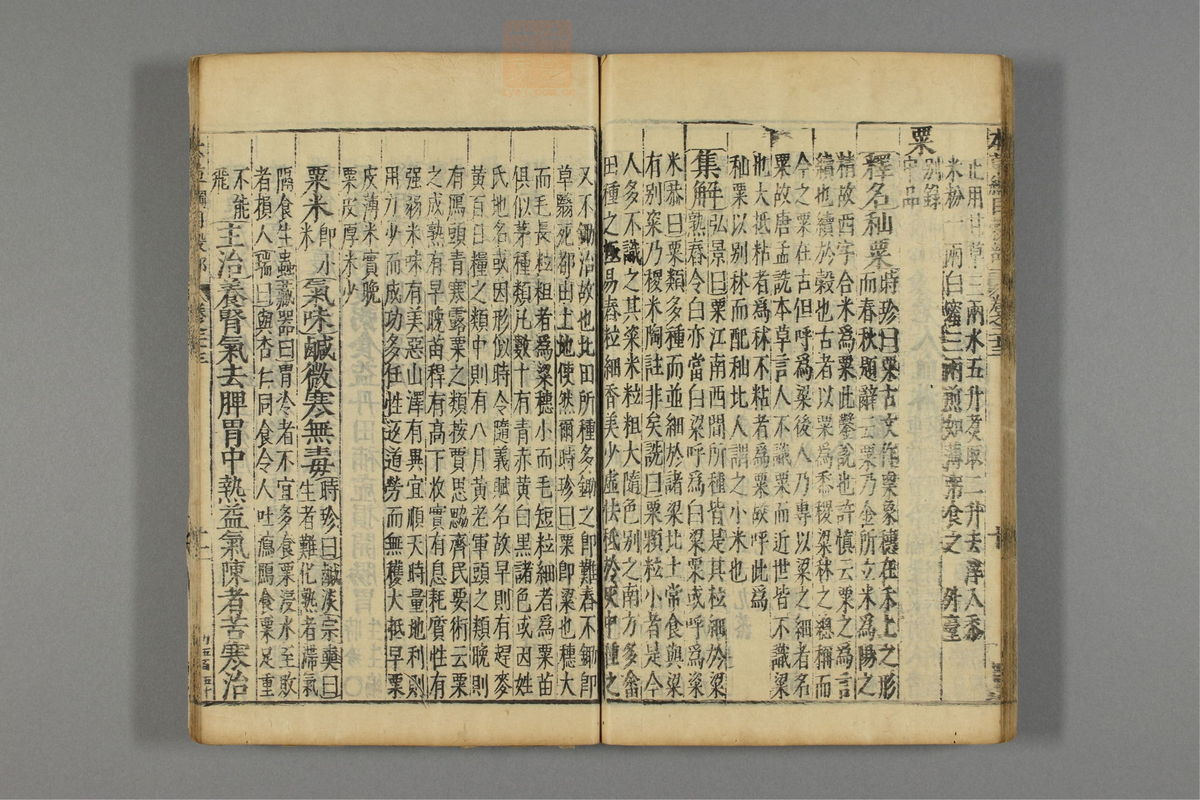 止用甘草三兩水五升煑取二升去滓入黍
米粉一兩白蜜三兩煎如薄粥食之 外臺
粟 別錄
中品
釋名秈粟 時珍曰粟古文作𥻆象穗在禾上之形
而春秋題辭云粟乃金所立米爲陽之
精故西字合米爲粟此鑿說也許慎云粟之爲言
續也續於穀也古者以粟爲黍稷粱秫之總稱而
今之粟在古但呼爲粱後人乃專以粱之細者名
粟故唐孟詵本草言人不識粟而近世皆不識粱
也大抵粘者爲秫不粘者爲粟故呼此爲
秈粟以别秫而配秈北人謂之小米也
集解 弘景曰粟江南西間所種皆是其粒細於粱
熟舂令白亦當白粱呼爲白粱粟或呼爲粢
米恭曰粟類多種而並細於諸粱北土常食與粱
有别粢乃稷米陶註非矣詵曰粟顆粒小者是今
人多不識之其粱米粒粗大隨色别之南方多畬
田種之極易舂粒細香美少虛怯秪於灰中種之
又不鋤治故也北田所種多鋤之卽難舂不鋤卽
草翳死都由土地使然爾時珍曰粟卽粱也穗大
而毛長粒粗者爲粱穗小而毛短粒細者爲粟苗
俱似茅種類凡數十有青赤黃白黑諸色或因姓
氏地名或因形似時令隨義賦名故早則有趕麥
黃百日糧之類中則有八月黃老軍頭之類晚則
有鴈頭青寒露粟之類按賈思勰齊民要術云粟
之成熟有早晚苗稈有高下收實有息耗質性有
强弱米味有美惡山澤有異宜順天時量地利則
用力少而成功多任性返道勞而無穫大抵早粟
皮薄米實晚
粟皮厚米少
粟米 卽小
米 氣味鹹微寒無毒 時珍曰鹹淡宗奭曰
生者難化熟者滯氣
隔食生蟲藏器曰胃冷者不宜多食粟浸水至敗
者損人瑞曰與杏仁同食令人吐瀉鴈食粟足重
不能
飛 主治養腎氣去脾胃中熱益氣陳者苦寒治